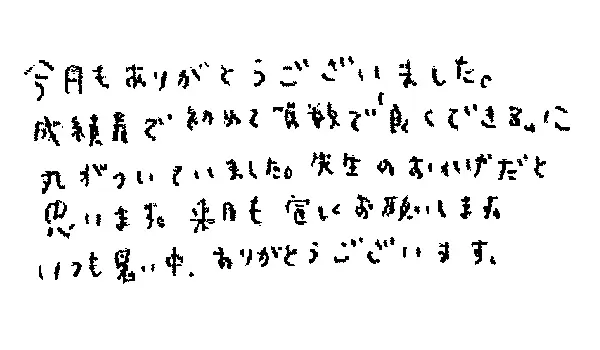 今月もありがとうございました。
成績表で初めて算数で「良くできる」に
丸がついていました。先生のおかげだと
思います。来月も宜しくお願いします。
いつも暑い中、ありがとうございます。